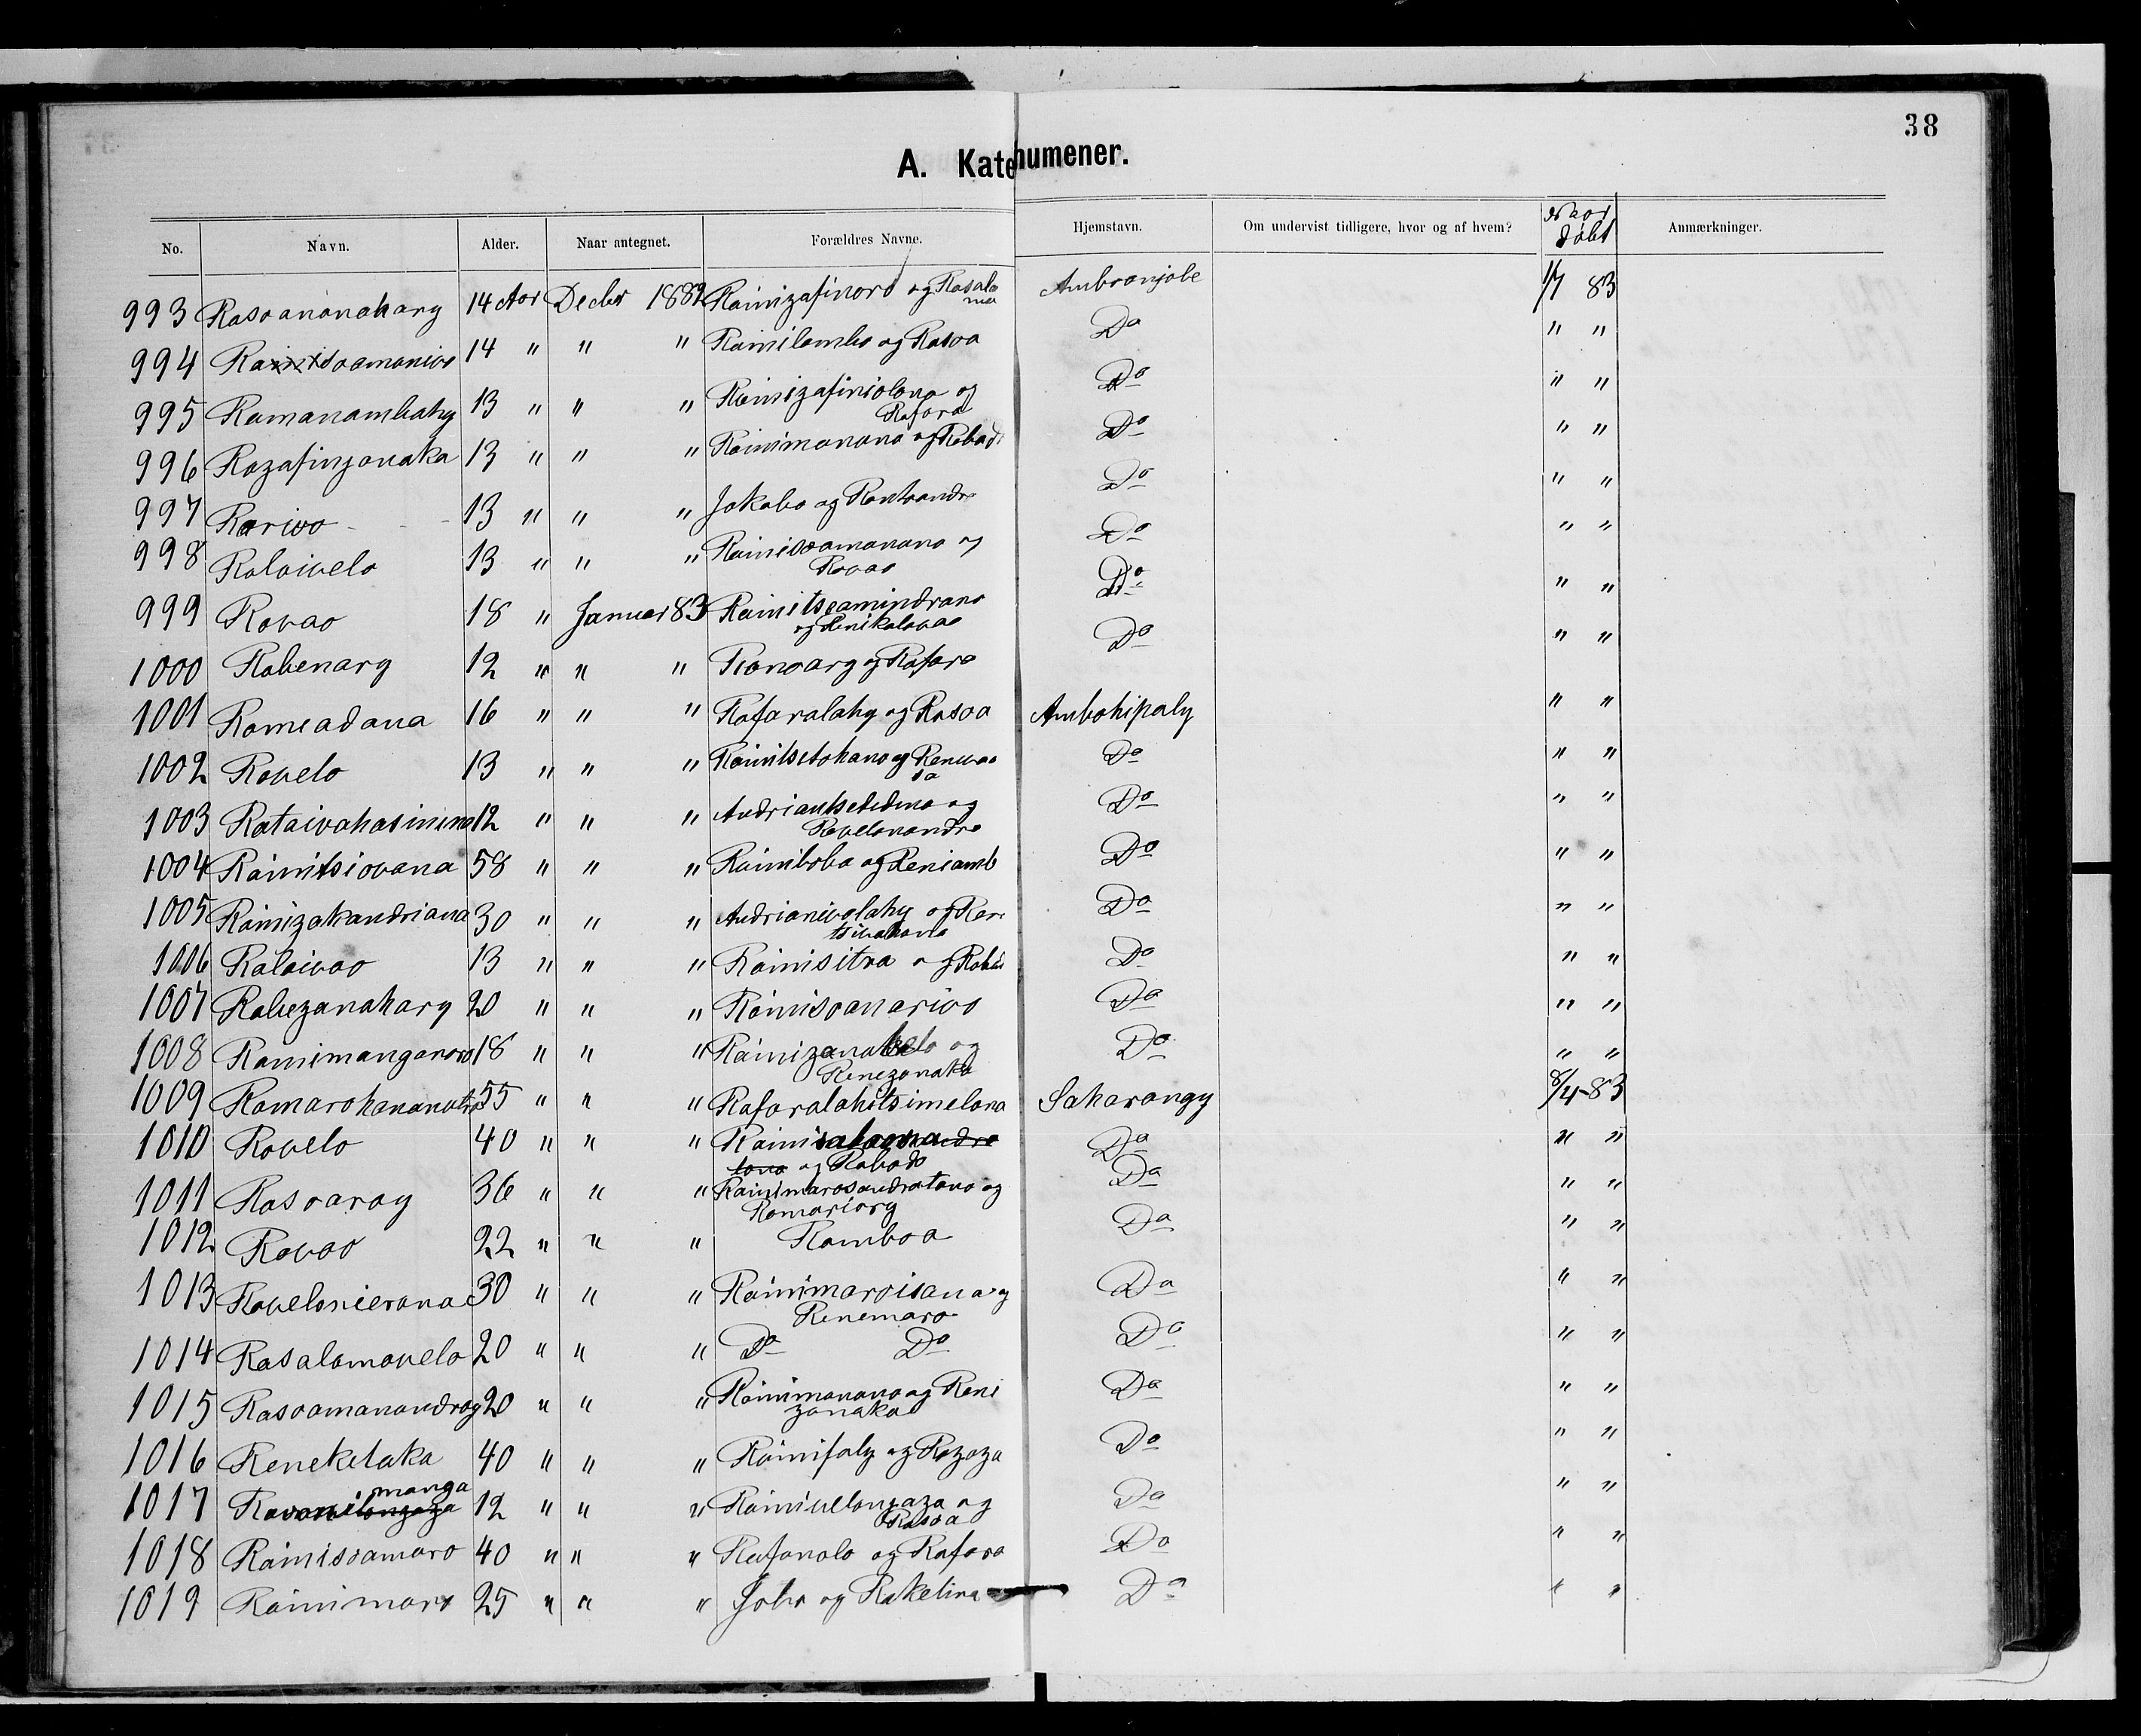 38
A. Katehumener.
No. Navn. Alder. Naar antegnet. Forældres Navne. Hjemstavn. Om undervist tidligere, hvor og af hvem? Naar døbt Anmærkninger.
993 Rasoananahary 14 Aar Decbr 1882 Rainizafinoro og Rasalama Ambronjobe 1/7 83
994 Rainisoamanivo 14 " " " Rainilambo og Rasoa Do " "
995 Ramanambahy 13 " " " Rainizafiniolona og Rafara Do " "
996 Razafinjanaka 13 " " " Rainimanana og Rabodo Do " "
997 Rarivo 13 " " " Jakobo og Do " "
998 Ralaivelo 13 " " " Rainisoamanana og Ravao Do " "
999 Ravao 18 " Januar 83 Rainitseamindrano og Renikalavao Do " "
1000 Rabenary 12 " " " Ranoary og Rafara Do " "
1001 Rameadana 16 " " " Rafaralahy og Rasoa Ambohipaly " "
1002 Ravelo 13 " " " Rainitsitohano og Do " "
1003 Rataivahasinina 12 " " " og Ravelonandro Do " "
1004 Rainitsiovana 58 " " " Rainiboba og Reniamb Do " "
1005 Rainizakandriana 30 " " " Andrianivolahy og Do " "
1006 Ralaivao 13 " " " Rainisitra og Do " "
1007 Rabezanahary 20 " " " Rainisoanarivo Do " "
1008 Rainimanganoro 18 " " " Rainizanabelo og Renezanaka Do " "
1009 Ramarohananatra 55 " " " Rafaralahitsimelona Saharangy 8/4-83
1010 Ravelo 40 " " " Rainisalama og Rabodo Do " "
1011 Rasoaray 36 " " " Rainimarosandratana og Ramariary Do " "
1012 Ravao 22 " " " Ramboa Do " "
1013 Ravelonierana 30 " " " Rainimaroisana og Renemaro Do " "
1014 Rasalamavelo 20 " " " Do Do Do " "
1015 Rasoamanandray 20 " " " Rainimanana og Renizanaka Do " "
1016 Reneketaka 40 " " " Rainifaly og Razaza Do " "
manga
1017 Ravonilonzaza 12 " " " Rainivelonzaza og Rasoa Do " "
1018 Rainisoamaro 40 " " " Rafanalo og Rafara Do " "
1019 Rainimaro 25 " " " Joba og Rakelina Do " "